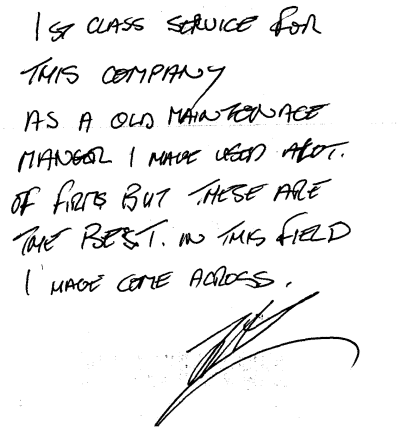 1st CLASS SERVICE FOR
THIS COMPANY
AS A OLD MAINTENACE
MANGER I HAVE USED ALOT.
OF FIRMS BUT THESE ARE
THE BEST. IN THIS FIELD
I HAVE COME ACROSS.